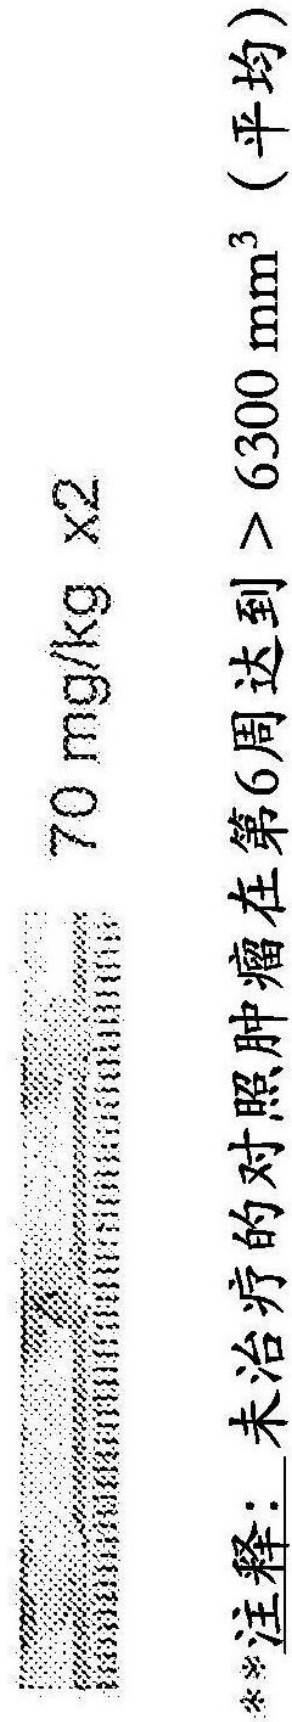 70 mg/kg x2
**注释: 未治疗的对照肿瘤在第6周达到 > 6300 mm³ (平均)